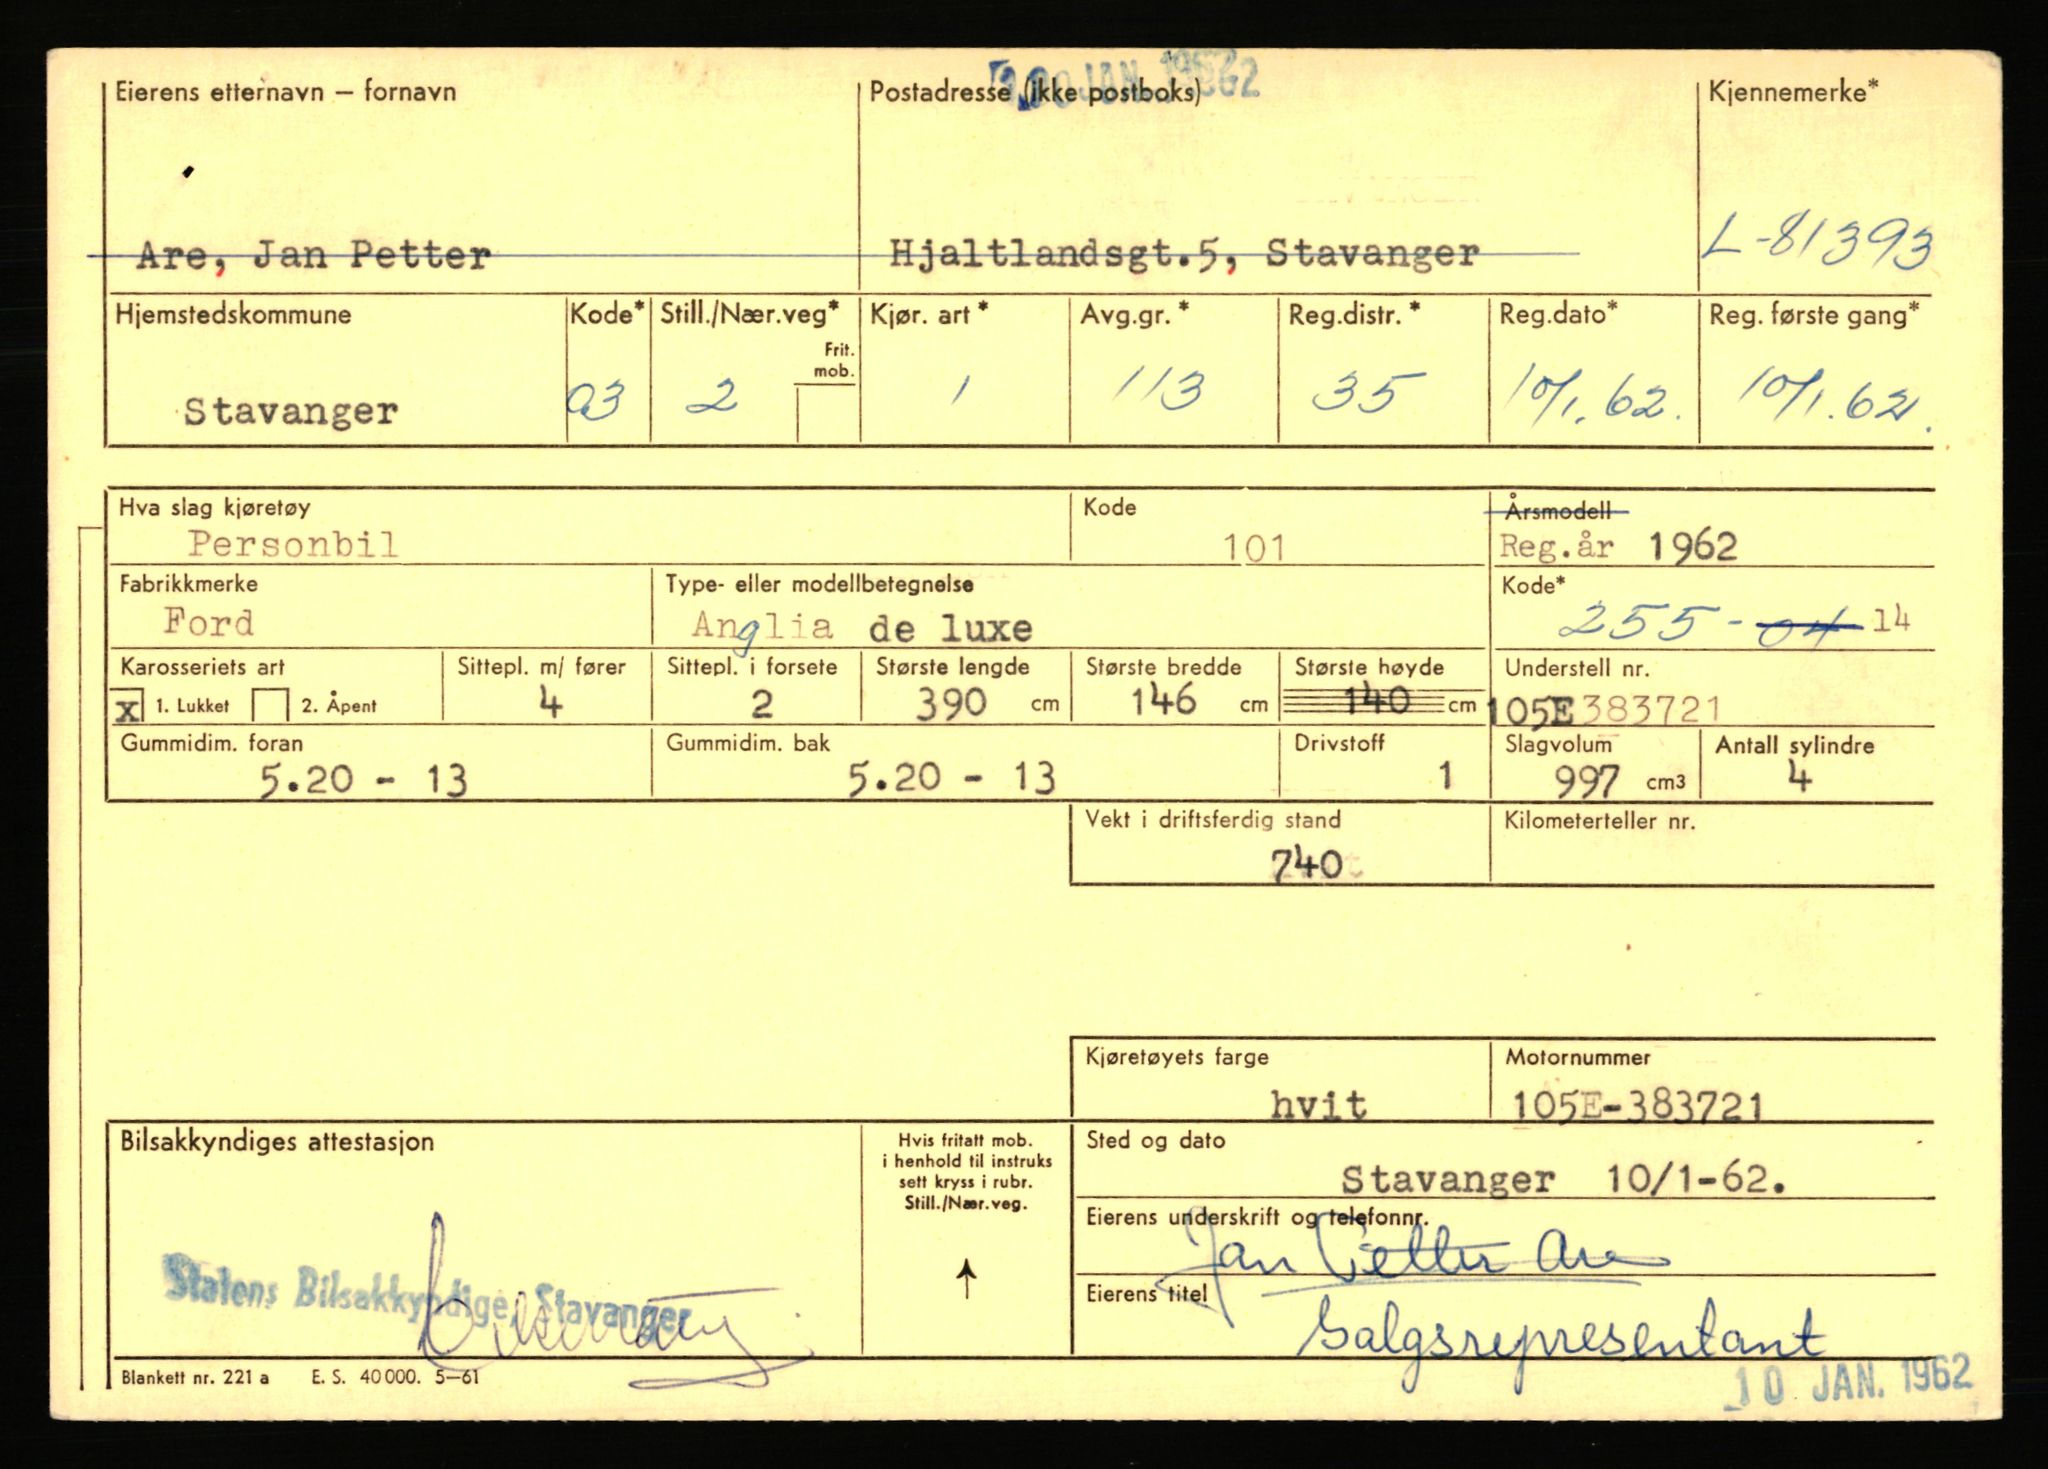 JAN. 1962
Eierens etternavn – fornavn Postadresse (ikke postboks) Kjennemerke*
Are, Jan Petter Hjaltlandsgt.5, Stavanger L-81393
Hjemstedskommune Kode* Still./Nær.veg* Kjør. art* Avg.gr.* Reg.distr.* Reg.dato* Reg. første gang*
Frit. mob.
Stavanger 03 2 1 113 35 10/1.62. 10/1.62.
Hva slag kjøretøy Kode Årsmodell
Personbil 101 Reg.år 1962
Fabrikkmerke Type- eller modellbetegnelse Kode*
Ford Anglia de luxe 255-04 14
Karosseriets art Sittepl. m/ fører Sittepl. i forsete Største lengde Største bredde Største høyde Understell nr.
x 1. Lukket 2. Åpent 4 2 390 cm 146 cm 140 cm 105E383721
Gummidim. foran Gummidim. bak Drivstoff Slagvolum Antall sylindre
5.20 - 13 5.20 - 13 1 997 cm3 4
Vekt i driftsferdig stand Kilometerteller nr.
740
Kjøretøyets farge Motornummer
hvit 105E-383721
Bilsakkyndiges attestasjon Hvis fritatt mob. i henhold til instruks sett kryss i rubr. Still./Nær.veg. Sted og dato
Stavanger 10/1-62.
Eierens underskrift og telefonnr.
Jan Petter Are
Statens Bilsakkyndige, Stavanger
Eierens titel
Salgsrepresentant
Blankett nr. 221 a E. S. 40 000. 5–61
10 JAN. 1962